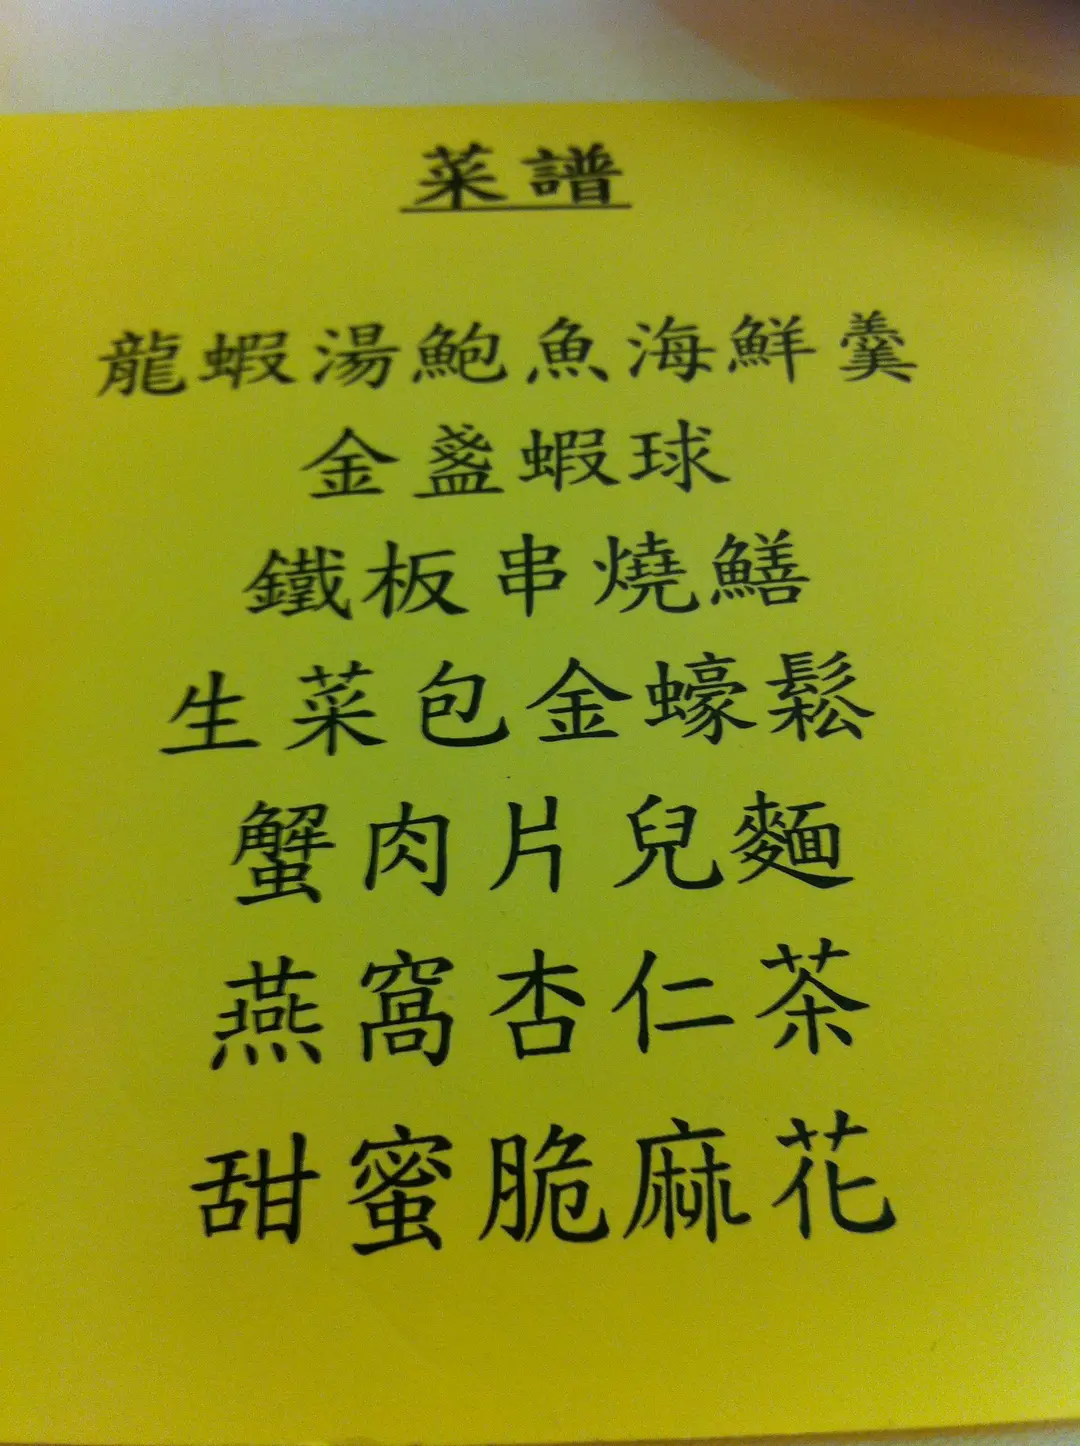 菜譜
龍蝦湯鮑魚海鮮羹
金盞蝦球
鐵板串燒鱔
生菜包金蠔鬆
蟹肉片兒麵
燕窩杏仁茶
甜蜜脆麻花